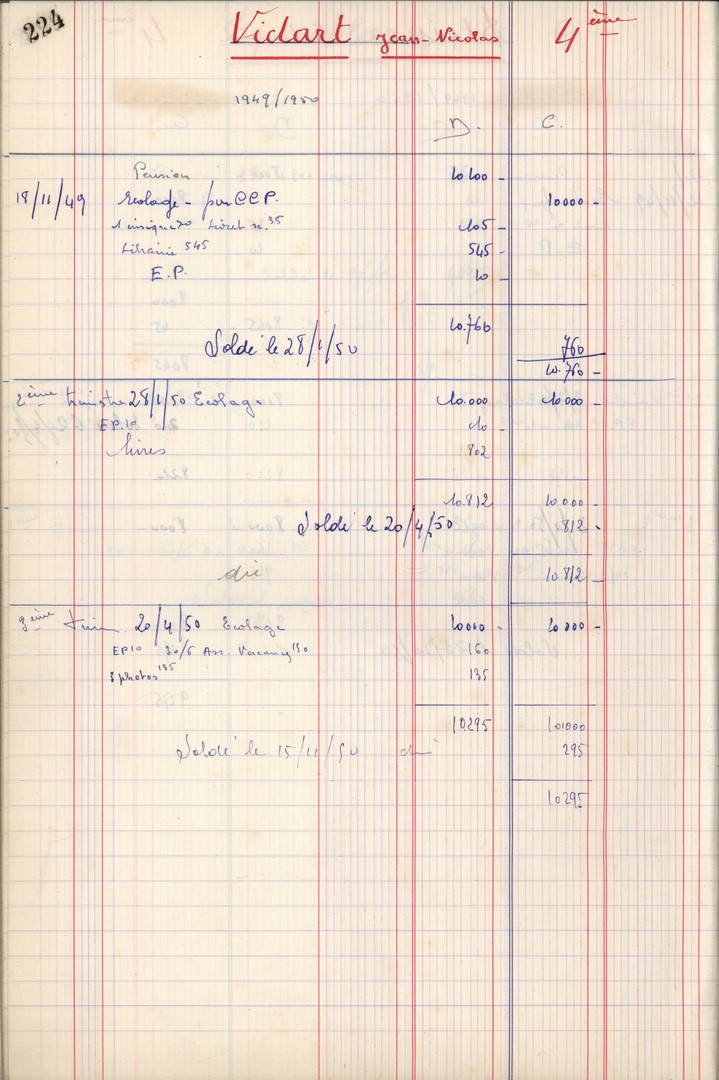 224
Vidart Jean-Nicolas 4ème
1949/1950
D. C.
Pension 10100 -
18/11/49 Ecolage - par CCP. 10000 -
1 insigne 70 Livret sc. 35 105 -
Librairie 545 545 -
E.P. 10 -
10.760
Soldé le 28/1/50 760
10.760 -
2ème trimstre 28/1/50 Ecolage 10.000 10000 -
EP.10 10 -
livres 802
10.812 10000 -
Soldé le 20/4/50 812 -
10.812 -
3ème trim. 20/4/50 Ecolage 10000 - 10000 -
EP10 Ass. Vacances 150 160
3 photos 135 135
10295 10000
Soldé le 15/11/50 295
10295